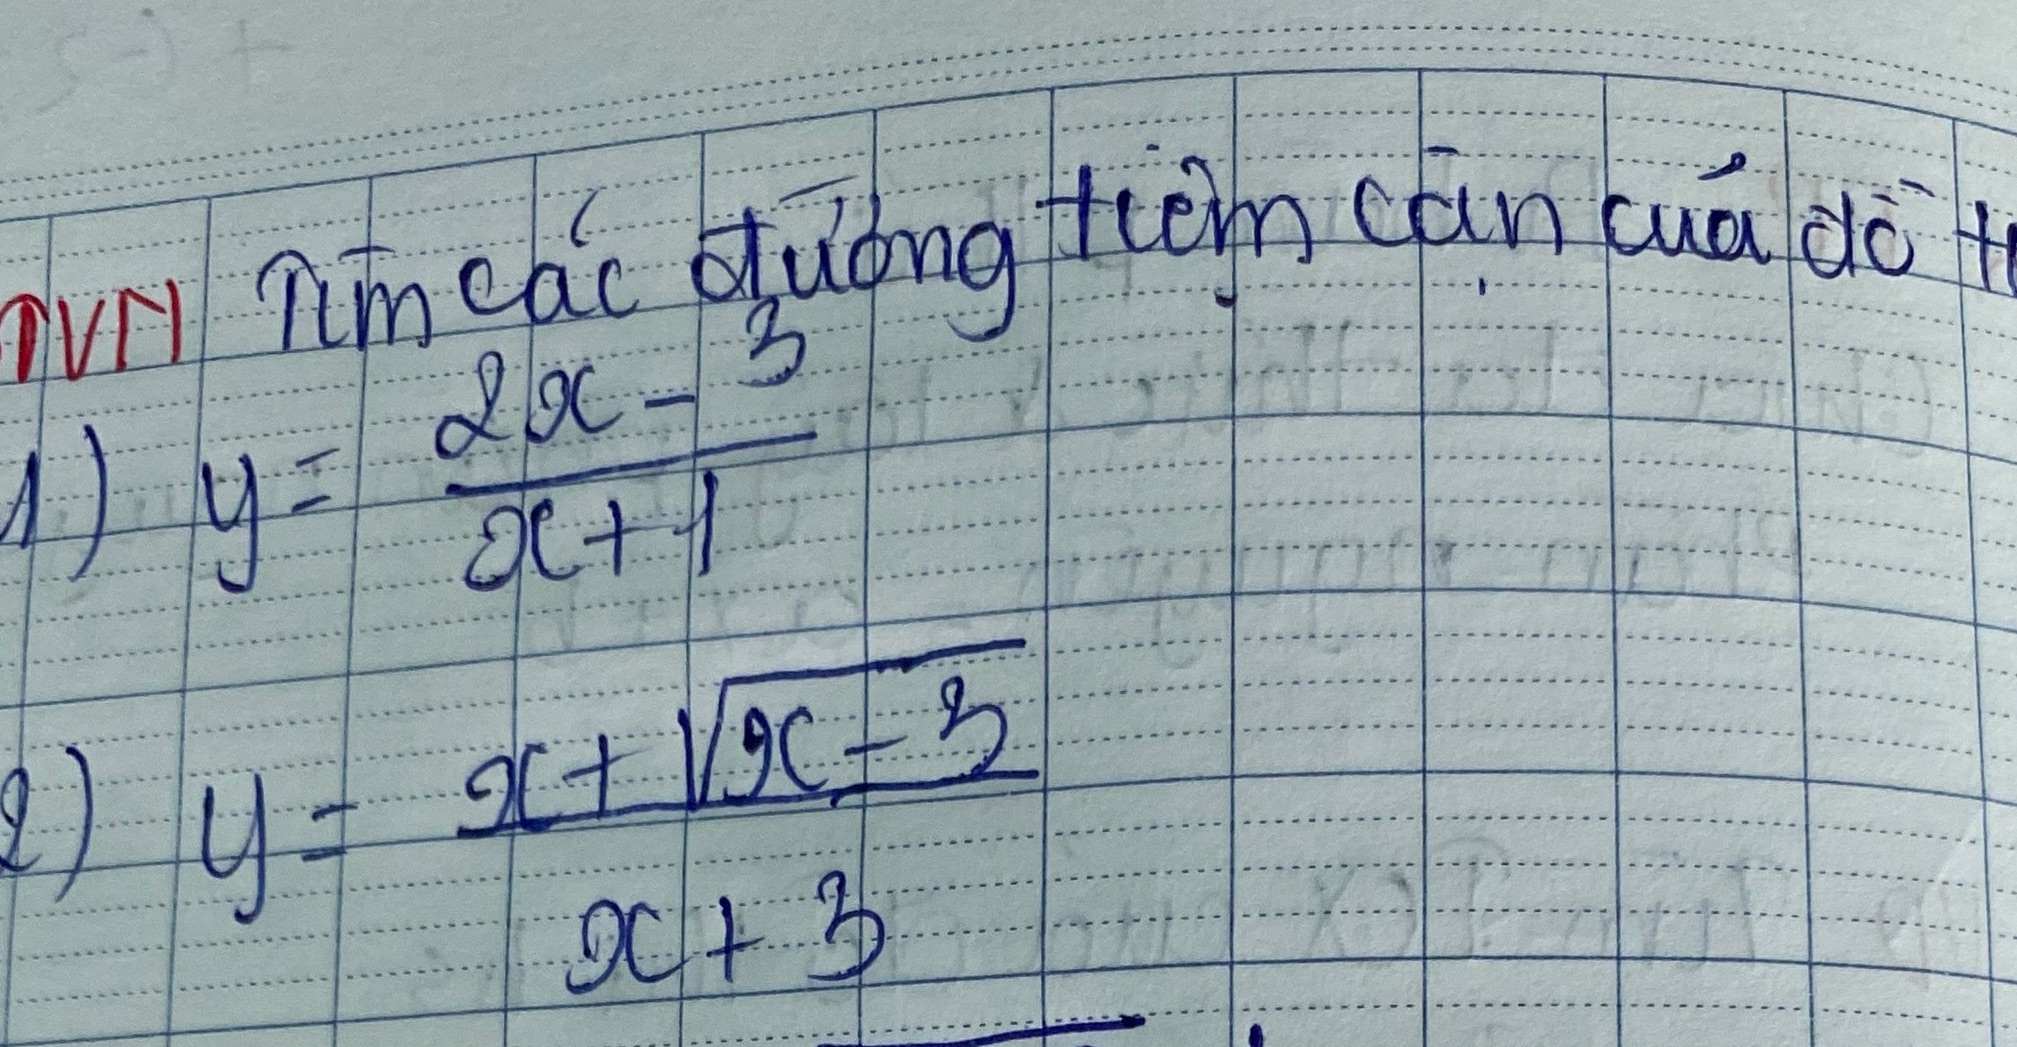 TVN Tìm các đường tiệm cận của đồ
1) y = \frac{2x - 3}{x + 1}
2) y = \frac{x + \sqrt{x - 3}}{x + 3}